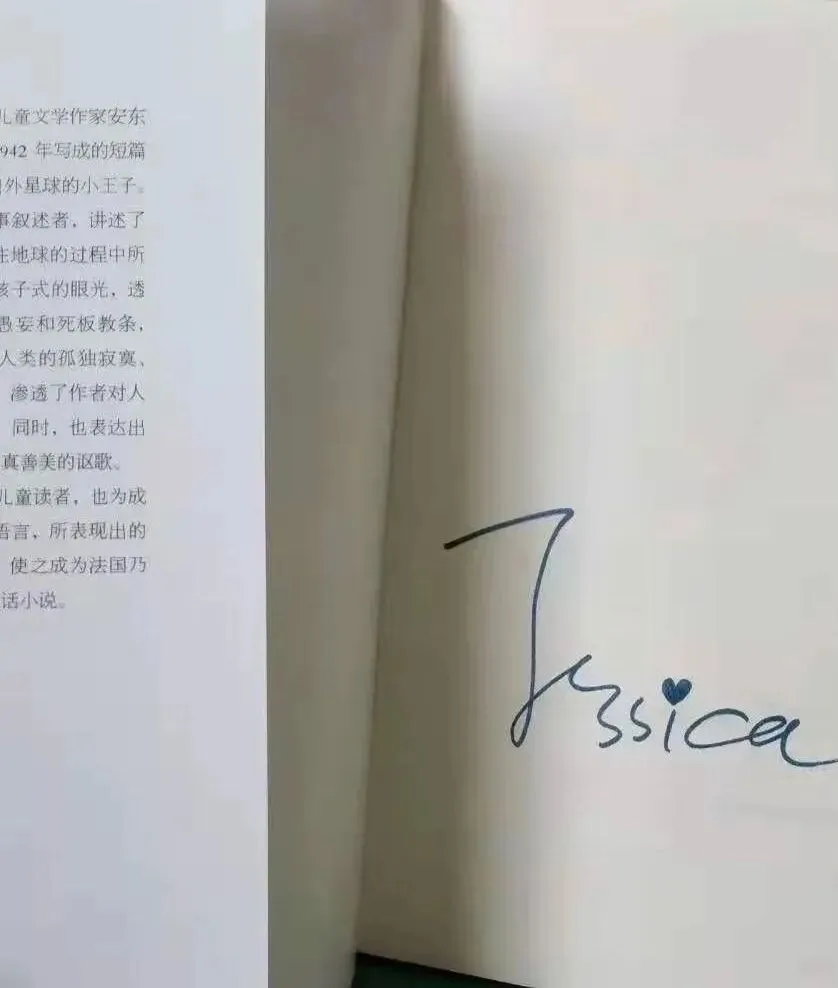 儿童文学作家安东
942 年写成的短篇
外星球的小王子。
事叙述者，讲述了
往地球的过程中所
孩子式的眼光，透
愚妄和死板教条，
人类的孤独寂寞、
渗透了作者对人
同时，也表达出
真善美的讴歌。
儿童读者，也为成
语言，所表现出的
使之成为法国乃
话小说。
Jessica